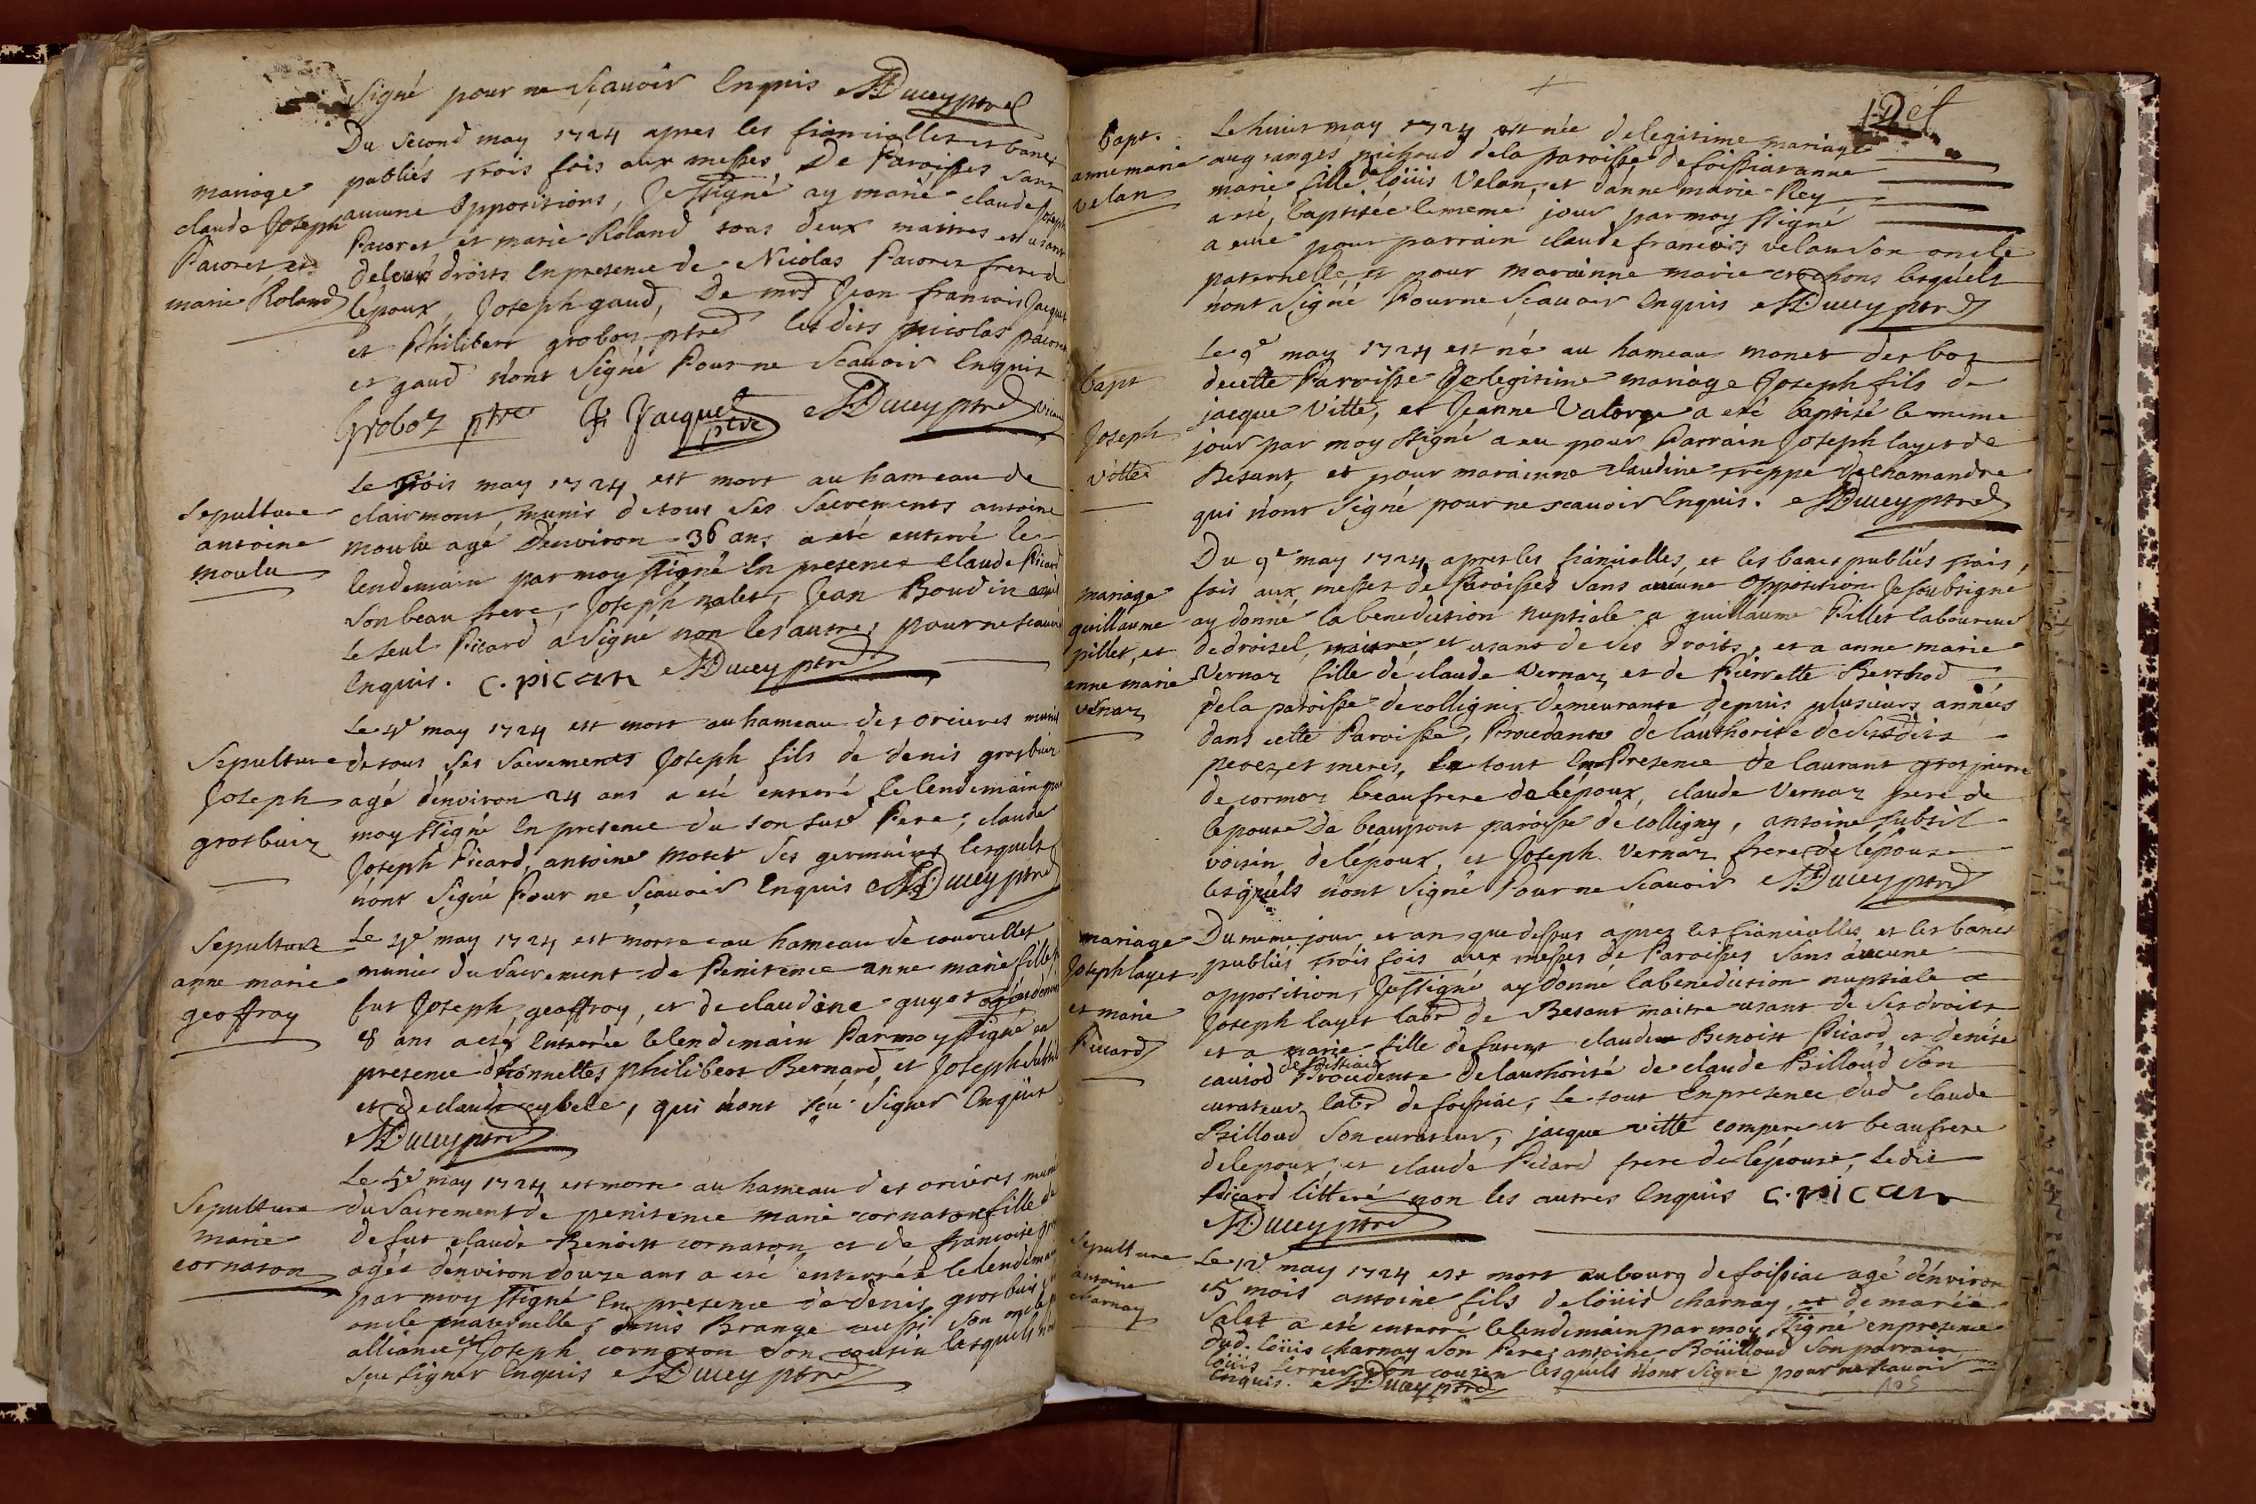 Signé pour ne sçavoir Enquis M Ducey ptre
Du second may 1724 apres les fiancialles et bancs
publiés trois fois aux messes De Paroisses sans
mariage
claude Joseph
Pacoret et
marie Roland
aucune oppositions, Je ssigné ay marié claude Joseph
Pacoret et marie Roland tous deux maitres et usants
de leurs droits En presence de Nicolas Pacoret frere de
lépoux, Joseph gaud, De mrs Jean francois Jacquet
et Philibert groboz ptre lesdits nicolas pacoret
et gaud n'ont signé Pour ne scavoir Enquis
Groboz ptre J. Jacquet ptre M Ducey ptre vicaire
Sepulture
antoine
moulu
Le trois may 1724 est mort au hameau de
clairmont munis de tous ses sacrements antoine
moulu agé d'environ 36 ans a été enterré le
lendemain par moy ssigné En presence Claude Picard
son beau frere, Joseph nalet, Jean Boudin
le seul Picard a signé non les autres pour ne scavoir
Enquis. C. picar M Ducey ptre
Sepulture
Joseph
grosbuiz
Le 4e may 1724 est mort au hameau des orcieres munis
de tous ses sacrements Joseph fils de denis grosbuiz
agé d'environ 24 ans a été enterré le lendemain par
moy ssigné En presence du son susd Pere, claude
Joseph Picard, antoine moret ses germains lesquels
n'ont signé Pour ne sçavoir Enquis M Ducey ptre
Sepulture
anne marie
geoffray
Le 4e may 1724 est morte au hameau de courcelles
munie du Sacrement de Penitence anne marie fille de
fut Joseph geoffroy, et de claudine guyot agée d'environ
8 ans a esté Enterrée le lendemain Par moy ssigné en
presence d'honnettes philibert Bernard, et Joseph subtil
et de claude cybelle, qui n'ont sçu signer Enquis
M Ducey ptre
Sepulture
marie
cornaton
Le 5e may 1724 est morte au hameau des orcieres munie
du Sacrement de penitence marie cornaton fille
de fut claude Benoist cornaton et de francoise
agée d'environ douze ans a été enterrée le lendemain
par moy ssigné En presence de denis grosbuis son
oncle maternelle, denis Brange aussi son oncle par
alliance, et Joseph cornaton son cousin lesquels n'ont
sçu signer Enquis M Ducey ptre
bapt.
anne marie
velan
Le huict may 1724 est née de legitime mariage
aug granges pichoud de la paroisse de foissiat anne
marie fille de Löüis Velan, et d'anne marie Rey
a eté baptisée le meme jour par moy ssigné
a eüe pour parrain claude francois velan son oncle
paternelle, et pour marainne marie crochons lesquels
n'ont signé Pour ne sçavoir Enquis M Ducey ptre
bapt
Joseph
vitte
Le 9e may 1724 est né au hameau monet des bos
de cette Paroisse De legitime mariage Joseph fils de
jacque Vitte, et Jeanne Vatorge a eté baptisé le meme
jour par moy ssigné a eu pour Parrain Joseph layet de
Besant, et pour marainne claudine treppe de chamandre
qui n'ont signé pour ne scavoir Enquis. M Ducey ptre
mariage
guillaume
pillet, et
anne marie
vernaz
Du 9e may 1724 apres les fiancialles, et les bancs publiés trois
fois aux messes de Paroisses sans aucune opposition Je soubsigné
ay donné la benediction nuptiale a guillaume Pillet laboureur
de droisel, maitre, et usant de ses droits, et a anne marie
Vernaz fille de claude Vernaz et de Pierrette Berthod
de la paroisse de collignis demeurante depuis plusieurs années
dans cette Paroisse, Procedante de l'authorité de sesdits
peres et meres, Le tout En Presence de laurant grospierre
de cormoz beaufrere de lépoux, claude Vernaz frere de
lépouse de beaupont paroisse de colligny, antoine subtil
voisin de lépoux, et Joseph Vernaz frere de lépouse
lesquels n'ont signé Pour ne scavoir M Ducey ptre
mariage
Joseph layet
et marie
Piccard
Du meme jour et an que dessus apres les fiancialles et les bancs
publiés trois fois aux messes de Paroisses sans aucune
opposition, Je ssigné ay donné la benediction nuptiale a
Joseph layet labr de Besant maitre usant de ses droits
et a marie fille de furent claude Benoist Picard et denise
de foissiat
causod Procedente de l'authorité de claude Billoud son
curateur labr de foissiac, le tout En presence dud claude
Billoud son curateur, jacque vitte compere et beaufrere
de lepoux, et claude Picard frere de lépouse, ledit
Picard litteré non les autres Enquis C. picar
M Ducey ptre
Sepulture
antoine
charnay
Le 12e may 1724 est mort au bourg de foissiac agé d'environ
5 mois antoine fils de löüis charnay, et de marie
Salet a eté enterré le lendemain par moy ssigné en presence
dud. löüis charnay son Pere, antoine Boüilloud son parrain
löüis terrier son cousin lesquels n'ont signé pour ne scavoir
Enquis. M Ducey ptre
105